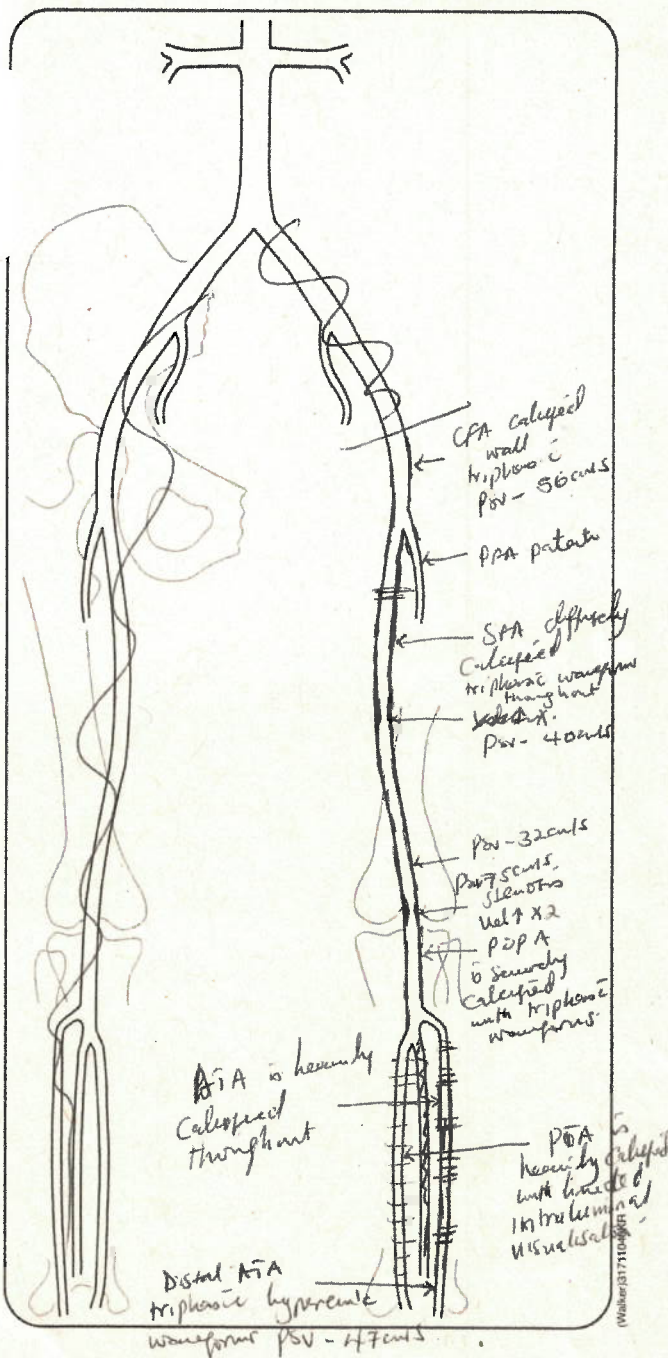 CFA calcified
wall
triphasic
PSV - 56cm/s
PFA patent
SFA diffusely
Calcified
triphasic waveforms
throughout
PSV - 40cm/s
PSV - 32cm/s
PSV 75cm/s
stenosis
Vel ↑ x2
POP A
is severely
Calcified
with triphasic
waveforms.
ATA is heavily
Calcified
throughout
PTA is
heavily calcified
with limited
intraluminal
visualisation.
Distal ATA
triphasic hyperemic
waveforms PSV - 47cm/s